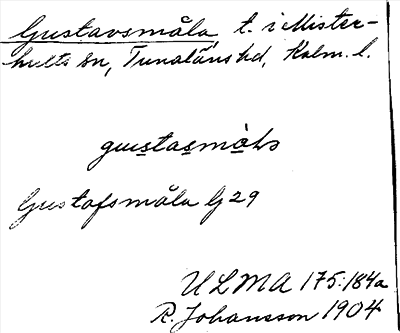 Gustavsmåla, t. i Mister-
hults sn, Tunaläns hd, Kalm. l.
gustasmåla
Gustafsmåla Gj 29
ULMA 175:184a
R. Johansson 1904